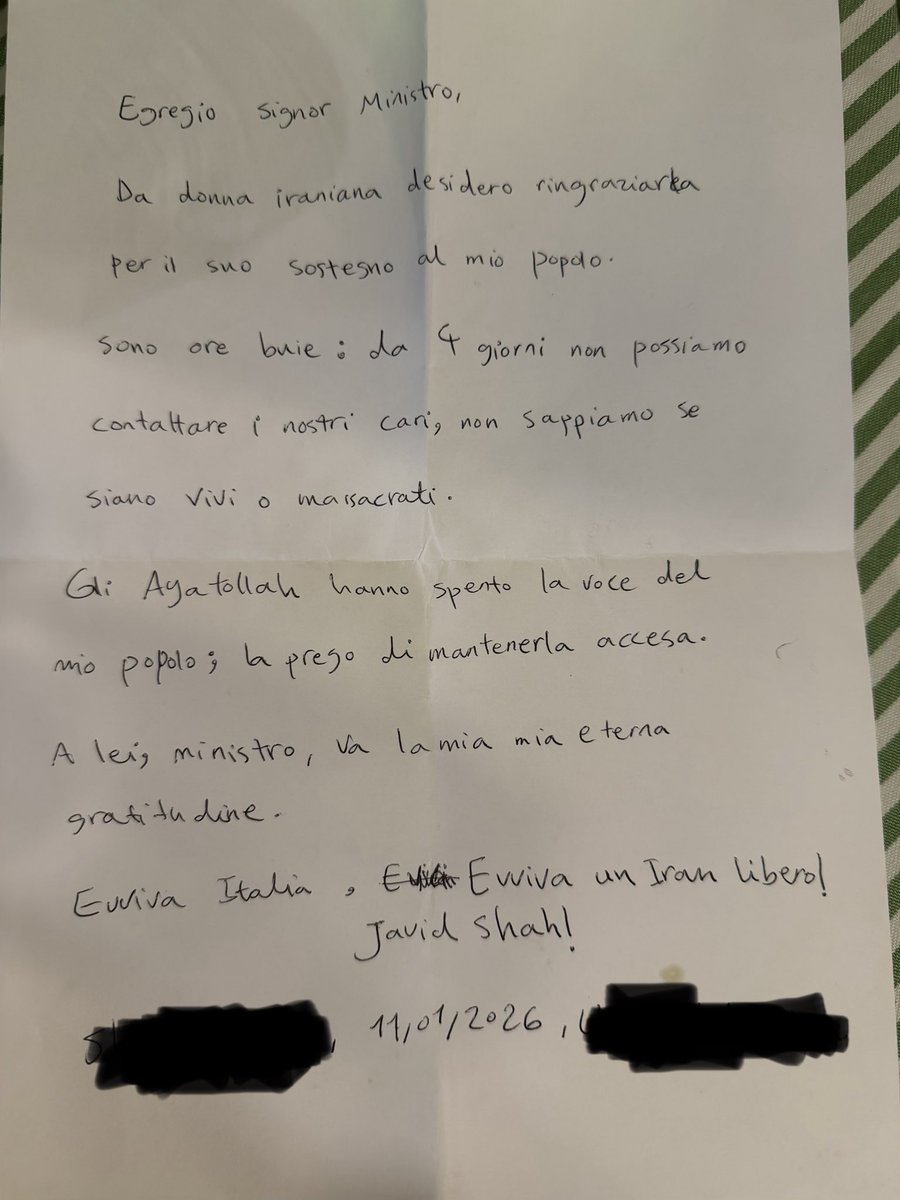 Egregio signor Ministro,
Da donna iraniana desidero ringraziarla
per il suo sostegno al mio popolo.
sono ore buie : da 4 giorni non possiamo
contattare i nostri cari, non sappiamo se
siano vivi o massacrati.
Gli Ayatollah hanno spento la voce del
mio popolo; la prego di mantenerla accesa.
A lei, ministro, va la mia mia eterna
gratitudine.
Evviva Italia , Evviva un Iran libero!
Javid shah!
11/01/2026 ,